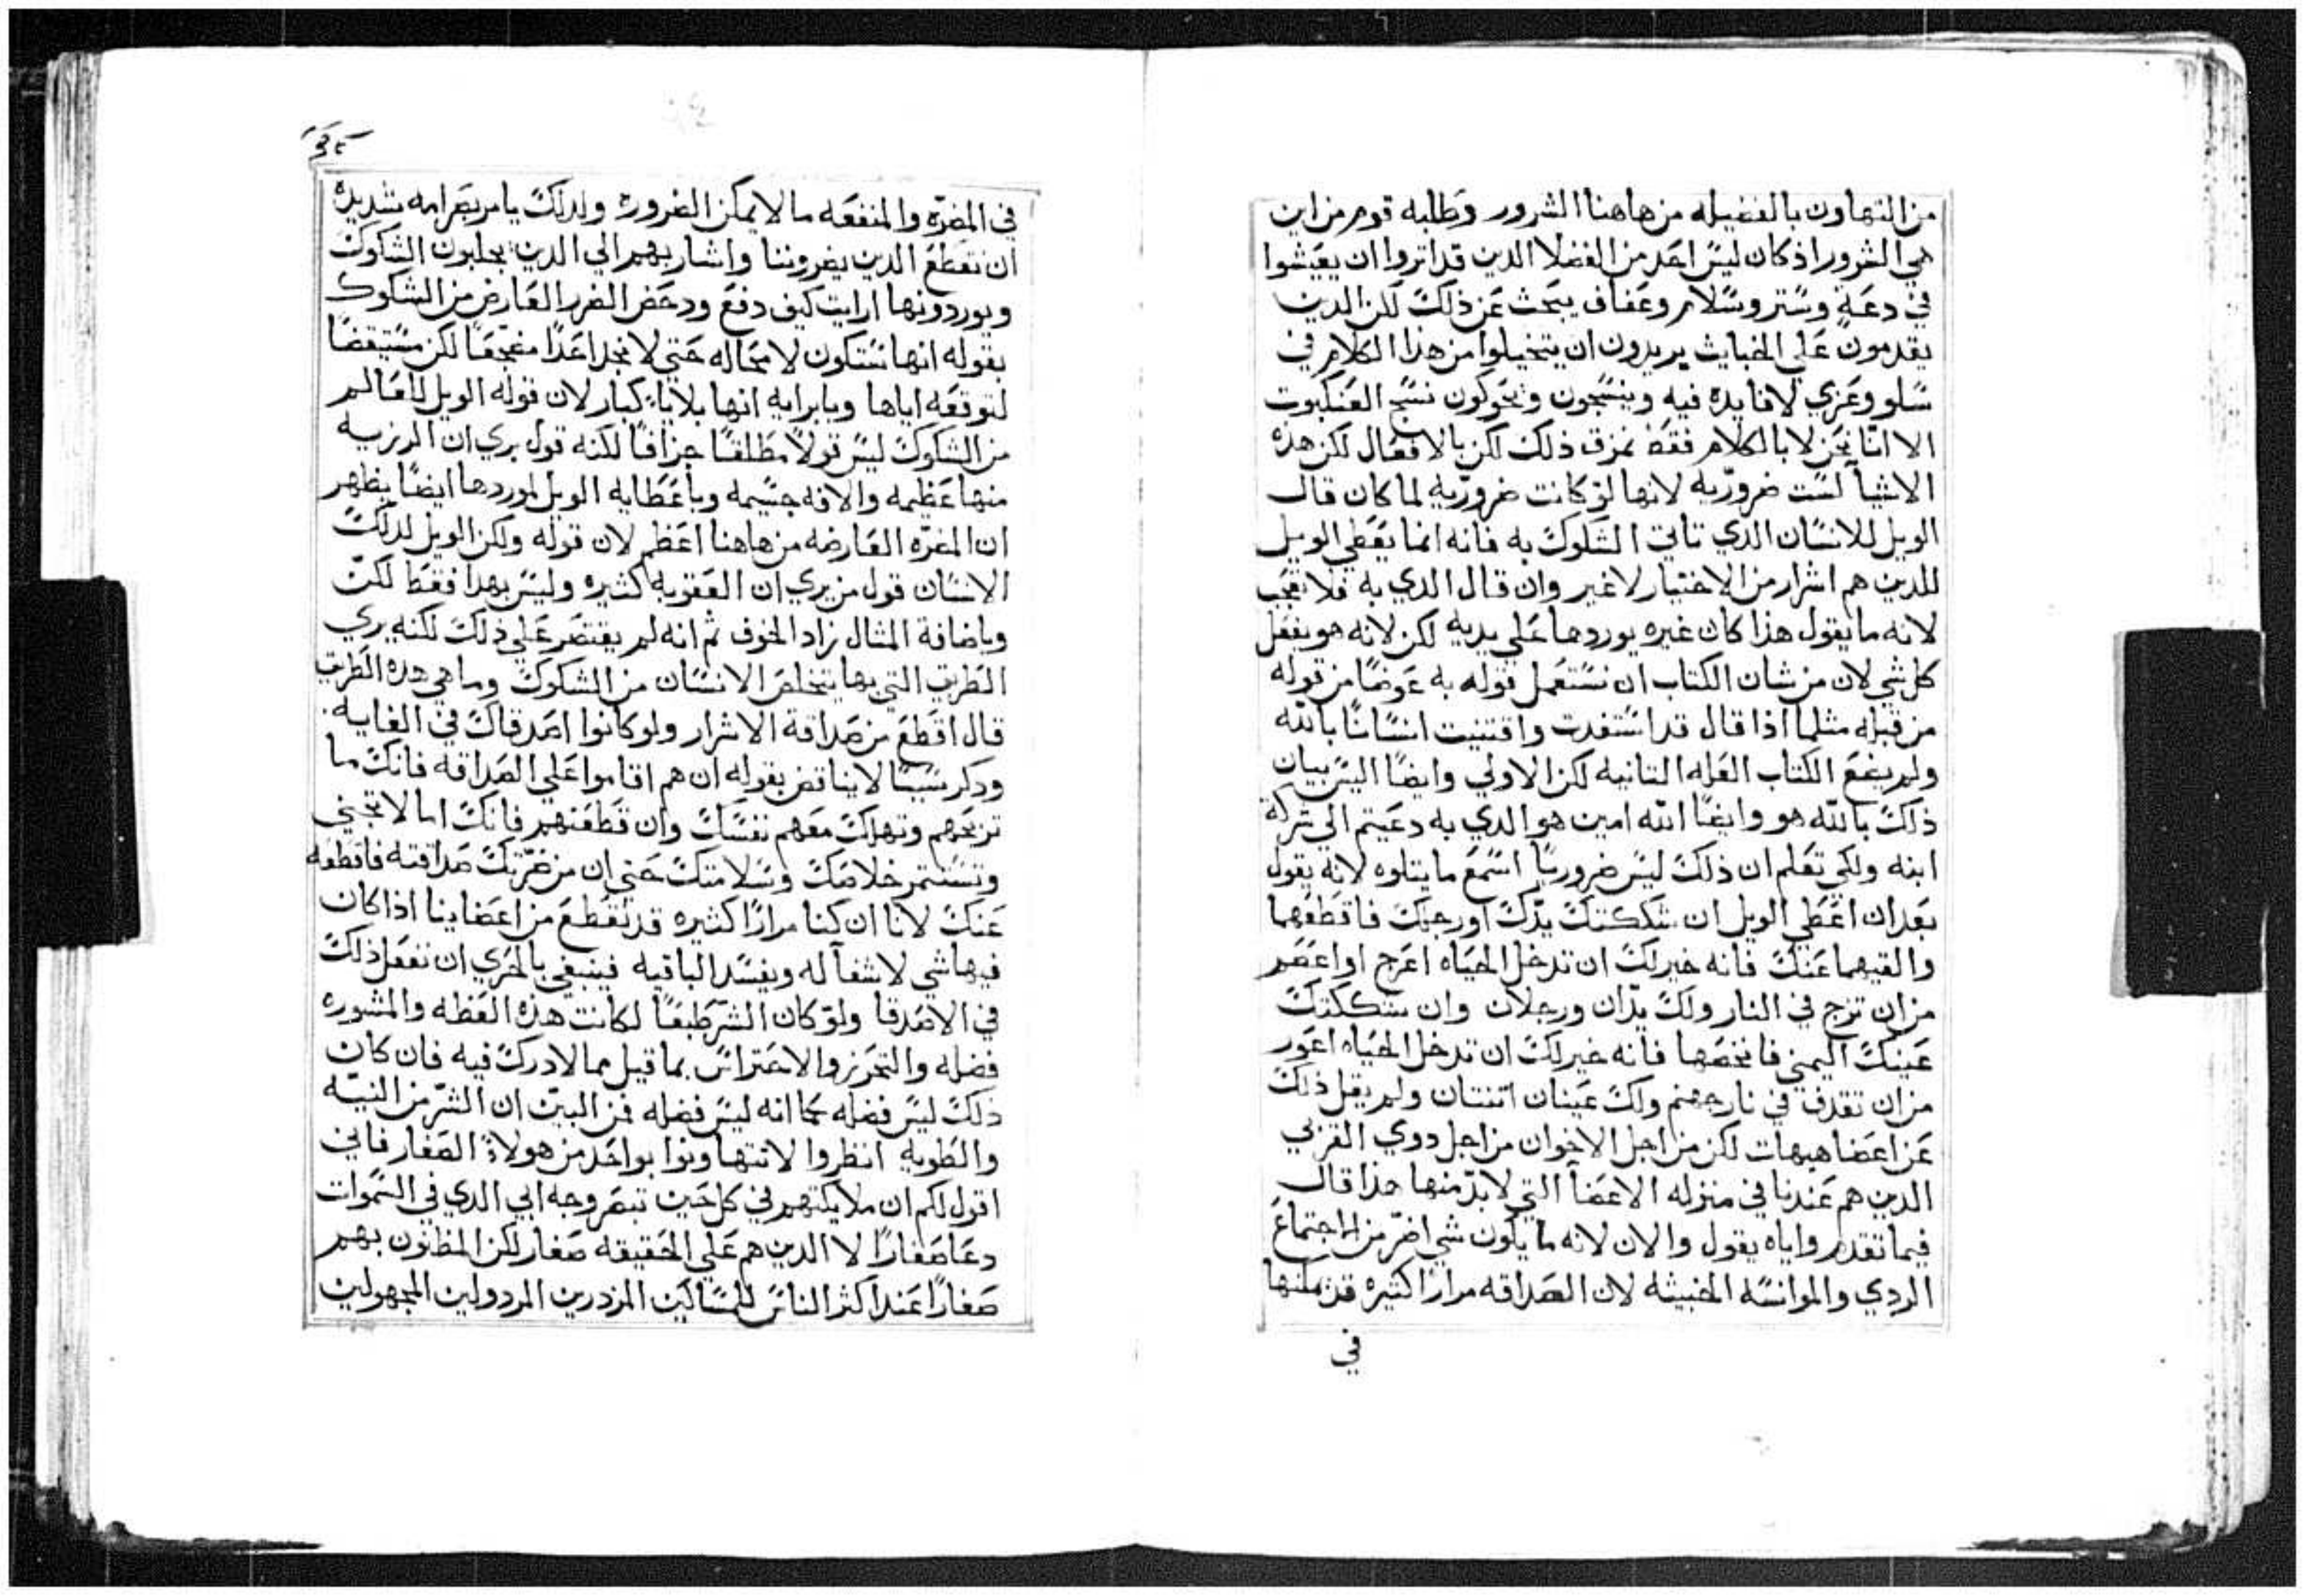 من التهاون بالفضيله من هاهنا الشرور وطلبه قوم من اين
هي الشرور اذ كان ليس احد من الفضلا الدين قد اتروا ان يعيشوا
في دعة وستر وسلام وعفاف يبحث عن ذلك لكن الدين
يقدمون علي الخبايث يريدون ان يتخيلوا من هذا الكلام في
سلو وعزي لا فايده فيه وينسجون ويحوكون نسج العنكبوت
الا انا نحن لا بالكلام فقط نمزق ذلك لكن بالافعال لكن هذه
الاشيا لست ضروريه لانها لو كانت ضروريه لما كان قال
الويل للانسان الدي تاتي الشكوك به فانه انما يعطي الويل
للدين هم اشرار من الاختيار لا غير وان قال الدي به فلا تعجب
لانه ما يقول هذا كان غيره يوردها علي يديه لكن لانه هو يفعل
كل شي لان من شان الكتاب ان نستعمل قوله به عوضا من قوله
من قبله مثلما اذا قال قد استفدت واقتنيت انسانا بالله
ولم يضع الكتاب العله التانيه لكن الاولي وايضا اليس بيان
ذلك بالله هو وايضا الله امين هو الدي به دعيتم الي شركة
ابنه ولكي تعلم ان ذلك ليس ضروريا اسمع ما يتلوه لانه يقول
بعد ان اعطي الويل ان شككتك يدك او رجلك فاقطعهما
والقيهما عنك فانه خير لك ان تدخل الحياه اعرج او اعصم
من ان تزج في النار ولك يدان ورجلان وان شككتك
عينك اليمني فانخصها فانه خير لك ان تدخل الحياه اعور
من ان تقدف في نار جهنم ولك عينان اتنتان ولم يقل ذلك
عن اعضا هيهات لكن من اجل الاخوان من اجل دوي القربي
الدين هم عندنا في منزله الاعضا التي لا بد منها هذا قال
فيما تقدم واياه يقول والان لانه ما يكون شي اضر من الاجتماع
الردي والموانسه الخبيثه لان الصداقه مرارا كثيره قد يمكنها
في
في المضره والمنفعه ما لا يمكن الضروره ولدلك يامر بصرامه شديده
ان نقطع الدين يضروننا واشار بهم الي الدين يجلبون الشكوك
ويوردونها ارايت كيف دفع ودحض الضرر العارض من الشكوك
بقوله انها ستكون لا محاله حتي لا نجد احدا مضجعا لكن مستيقضا
لتوقعه اياها وبايرايه انها بلايا كبار لان قوله الويل للعالم
من الشكوك ليس قولا مطلقا جزافا لكنه قول يري ان الرزيه
منها عظيمه والافه جسيمه وباعطايه الويل لموردها ايضا يظهر
ان المضره العارضه من هاهنا اعظم لان قوله ولكن الويل لدلك
الانسان قول من يري ان العقوبه كثيره وليس بهدا فقط لكن
وباضافة المثال زاد الخوف ثم انه لم يقتصر علي ذلك لكنه يري
الطريق التي بها يتخلص الانسان من الشكوك وما هي هده الطريق
قال اقطع من صداقة الاشرار ولو كانوا اصدقاك في الغايه
ودكر شيئا لا يناقض بقوله ان هم اقاموا علي الصداقه فانك ما
تربحهم وتهلك معهم نفسك وان قطعتهم فانك اما لا تجني
وتستتمر خلاصك وسلامتك حتي ان من ضرتك صداقته فاقطعه
عنك لانا ان كنا مرارا كثيره قد نقطع من اعضاينا اذا كان
فيها شي لا شفا له ويفسد الباقيه فينبغي بالحري ان نفعل ذلك
في الاصدقا ولو كان الشر طبعا لكانت هذه العظه والمشوره
فضله والتحرز والاحتراس بما قيل مما لا درك فيه فان كان
ذلك ليس فضله كما انه ليس فضله فمن البين ان الشر من النيه
والطويه انظروا لا تتهاونوا بواحد من هولاء الصغار فاني
اقول لكم ان ملايكتهم في كل حين تبصر وجه ابي الدي في السموات
دعا صغارا لا الدين هم علي الحقيقه صغار لكن المظنون بهم
صغارا عند اكثر الناس للمساكين المزدرين المردولين المجهولين